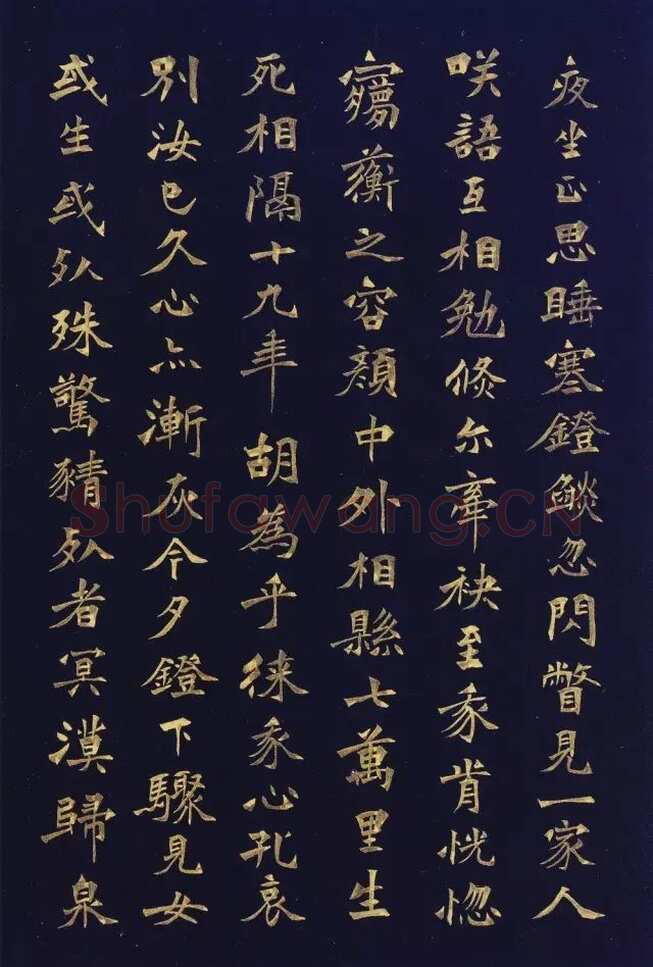 夜坐正思睡寒鐙燄忽閃瞥見一家人
咲語互相勉倏尔牽袂至肯恍惚
蘅之容顏中外相縣七萬里生
死相隔十九年胡為乎徠心孔哀
別汝已久心亦漸灰今夕鐙下驟見女
或生或死殊驚猜死者冥漠歸泉
Shufawang.CN